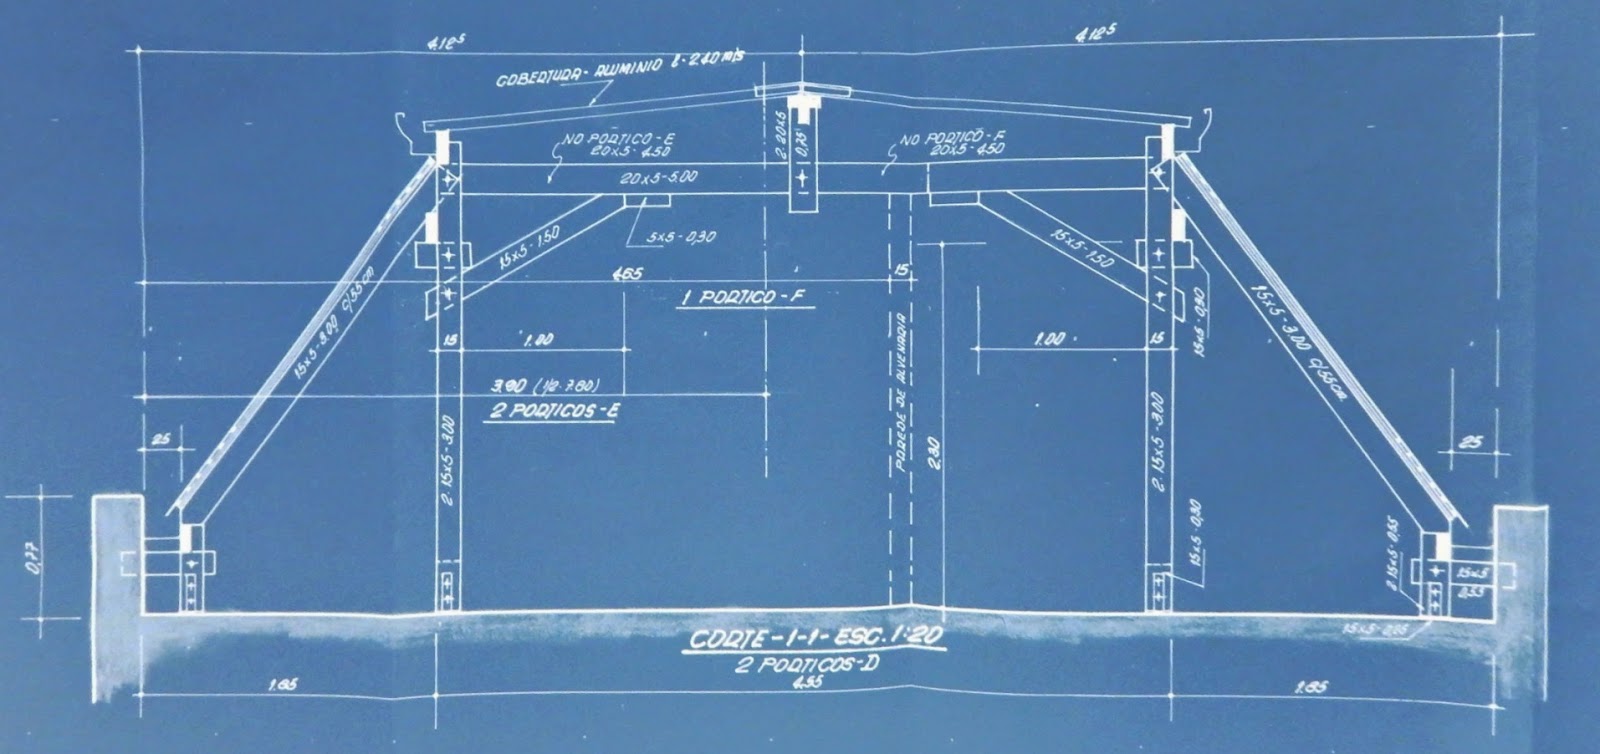 4.12⁵
4.12⁵
COBERTURA - ALUMINIO l - 2.40 m/s
NO PORTICO - E
20x5 - 4.50
2. 20x5
0,75
NO PORTICO - F
20x5 - 4.50
20x5 - 5.00
15x5 - 1.50
5x5 - 0,30
15x5 - 1.50
4.65
15
1 PORTICO - F
15x5 - 3.00 c/55cm
15x5 - 0,30
15x5 - 3.00 c/55cm
15
1.00
1.00
15
3.90 (1/2 - 7.80)
2 PORTICOS - E
PAREDE DE ALVENARIA
2,30
25
2. 15x5 - 3.00
2. 15x5 - 3.00
25
0,77
15x5 - 0,30
2. 15x5 - 0,55
15x5
0,55
CORTE - 1-1 - ESC. 1:20
2 PORTICOS - D
1.85
4.55
1.85